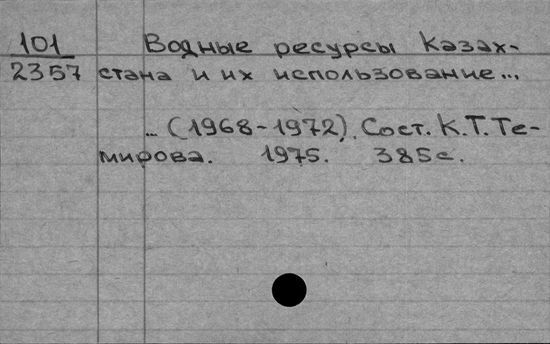 101 Водные ресурсы Казах-
2357 стана и их использование...
... (1968-1972). Сост. К.Т.Те-
мирова. 1975. 385с.